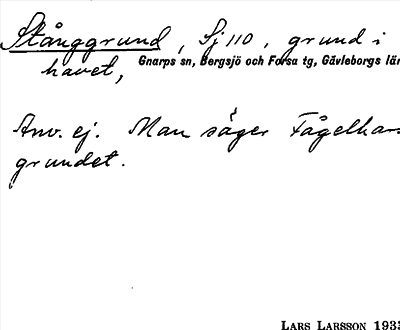 Stånggrund, Sj 110, grund i
havet, Gnarps sn, Bergsjö och Forsa tg, Gävleborgs län
Anv. ej. Man säger Fågelhars
grundet.
LARS LARSSON 1933